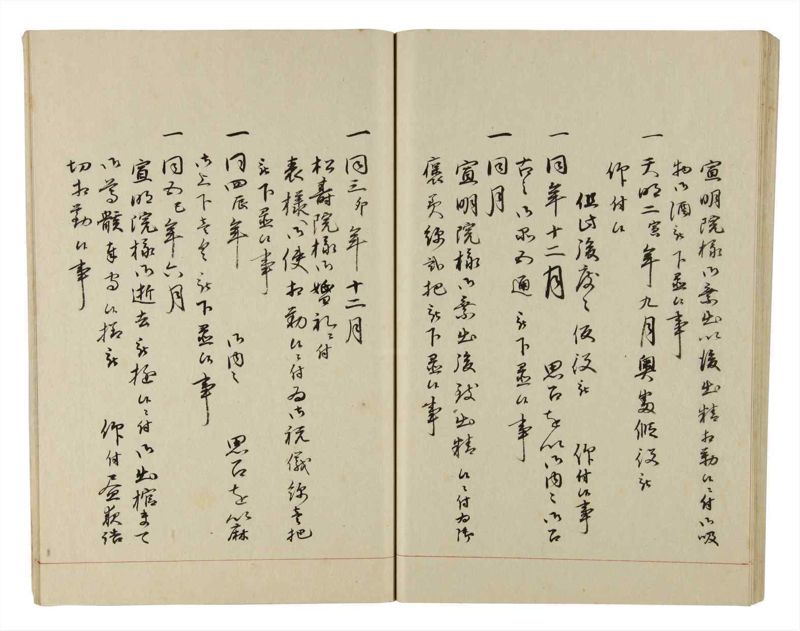 宣明院様御棄出以後出精相勤候ニ付御吸
物御酒被下置候事
一天明二寅年九月奥番仮役被
仰付候
但此後度々仮役被 仰付候事
一同年十二月 思召を以御内々御召
古之御品五通被下置候事
一同月
宣明院様御棄出後致出精候ニ付為御
褒美綿弐把被下置候事
一同三卯年十二月
松寿院様御婚礼ニ付
表様御使相勤候ニ付為御祝儀綿壱把
被下置候事
一同四辰年 御内々 思召を以麻
御上下壱具被下置候事
一同五巳年六月
宣明院様御逝去被遊候ニ付御出棺まて
御尊骸奉守候様被 仰付昼夜詰
切相勤候事